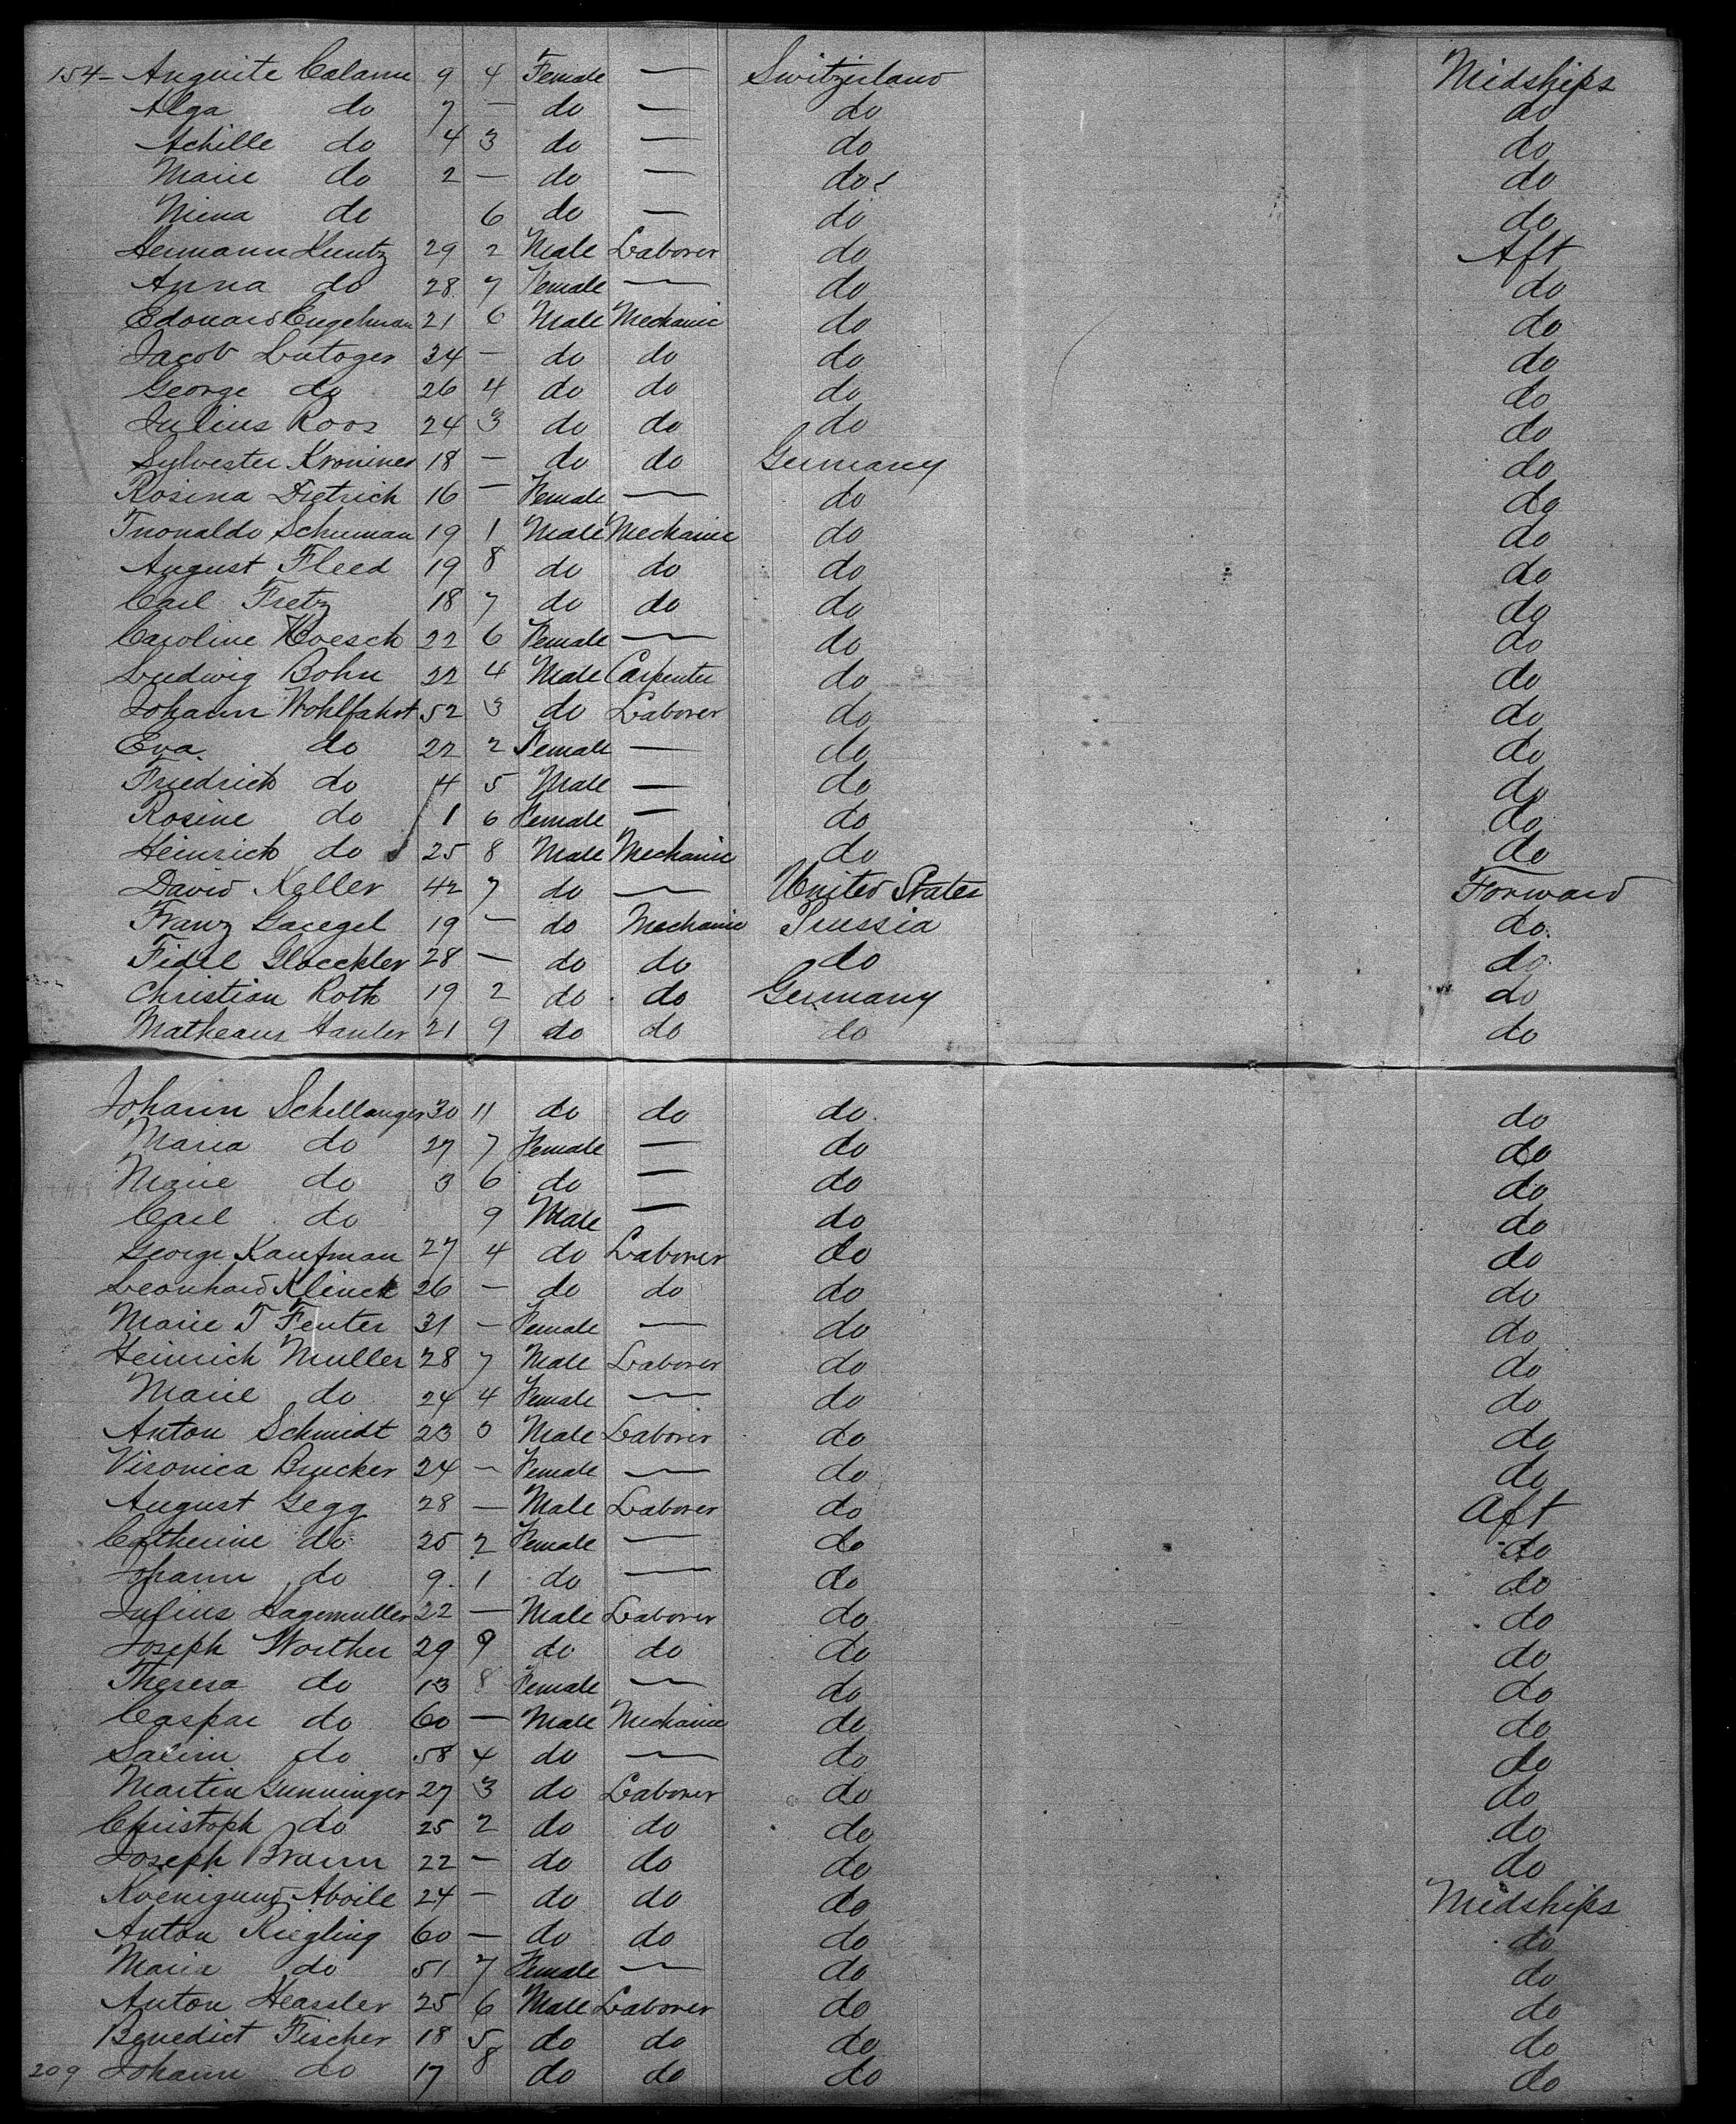 154- Auguite Calame 9 4 Female — Switzerland Midships
Alga do 7 — do — do do
Achille do 4 3 do — do do
Marie do 2 — do — do do
Nina do 6 do — do do
Hermann Kuntz 29 2 Male Laborer do Aft
Anna do 28 7 Female — do do
Edouard Engelman 21 6 Male Mechanic do do
Jacob Lutoger 34 — do do do do
George do 26 4 do do do do
Julius Roos 24 3 do do do do
Sylvester Kroniner 18 — do do Germany do
Rosina Dietrich 16 — Female — do do
Schuman 19 1 Male Mechanic do do
August Fleed 19 8 do do do do
Carl Fretz 18 7 do do do do
Caroline Hoesch 22 6 Female — do do
Ludwig Bohn 22 4 Male Carpenter do do
Johann Wohlfahrt 52 3 do Laborer do do
Eva do 22 2 Female — do do
Friedrich do 4 5 Male — do do
Rosine do 1 6 Female — do do
Heinrich do 25 8 Male Mechanic do do
David Keller 42 7 do — United States Forward
Franz Gacegel 19 — do Mechanic Prussia do
Fidel Gloeckler 28 — do do do do
Christian Roth 19 2 do do Germany do
Matheaus Hauler 21 9 do do do do
Johann Schellanger 30 11 do do do do
Maria do 27 7 Female — do do
Marie do 3 6 do — do do
Carl do 9 Male — do do
George Kaufman 27 4 do Laborer do do
Leonhard Klinck 26 — do do do do
Marie T Feuter 31 — Female — do do
Heinrich Muller 28 7 Male Laborer do do
Marie do 24 4 Female — do do
Anton Schmidt 23 3 Male Laborer do do
Vironica Brucker 24 — Female — do do
August Gegg 28 — Male Laborer do Aft
Catherine do 25 2 Female — do do
Johann do 9 1 do — do do
Julius Hagemuller 22 — Male Laborer do do
Joseph Worther 29 9 do do do do
Theresa do 13 8 Female — do do
Caspar do 60 — Male Mechanic do do
Salim do 58 4 do — do do
Martin Gunninger 27 3 do Laborer do do
Christoph do 25 2 do do do do
Joseph Braun 22 — do do do do
Koenigund Aboile 24 — do do do Midships
Anton Riegling 60 — do do do do
Maria do 51 7 Female — do do
Anton Heassler 25 6 Male Laborer do do
Benedict Fischer 18 5 do do do do
209 Johann do 17 8 do do do do